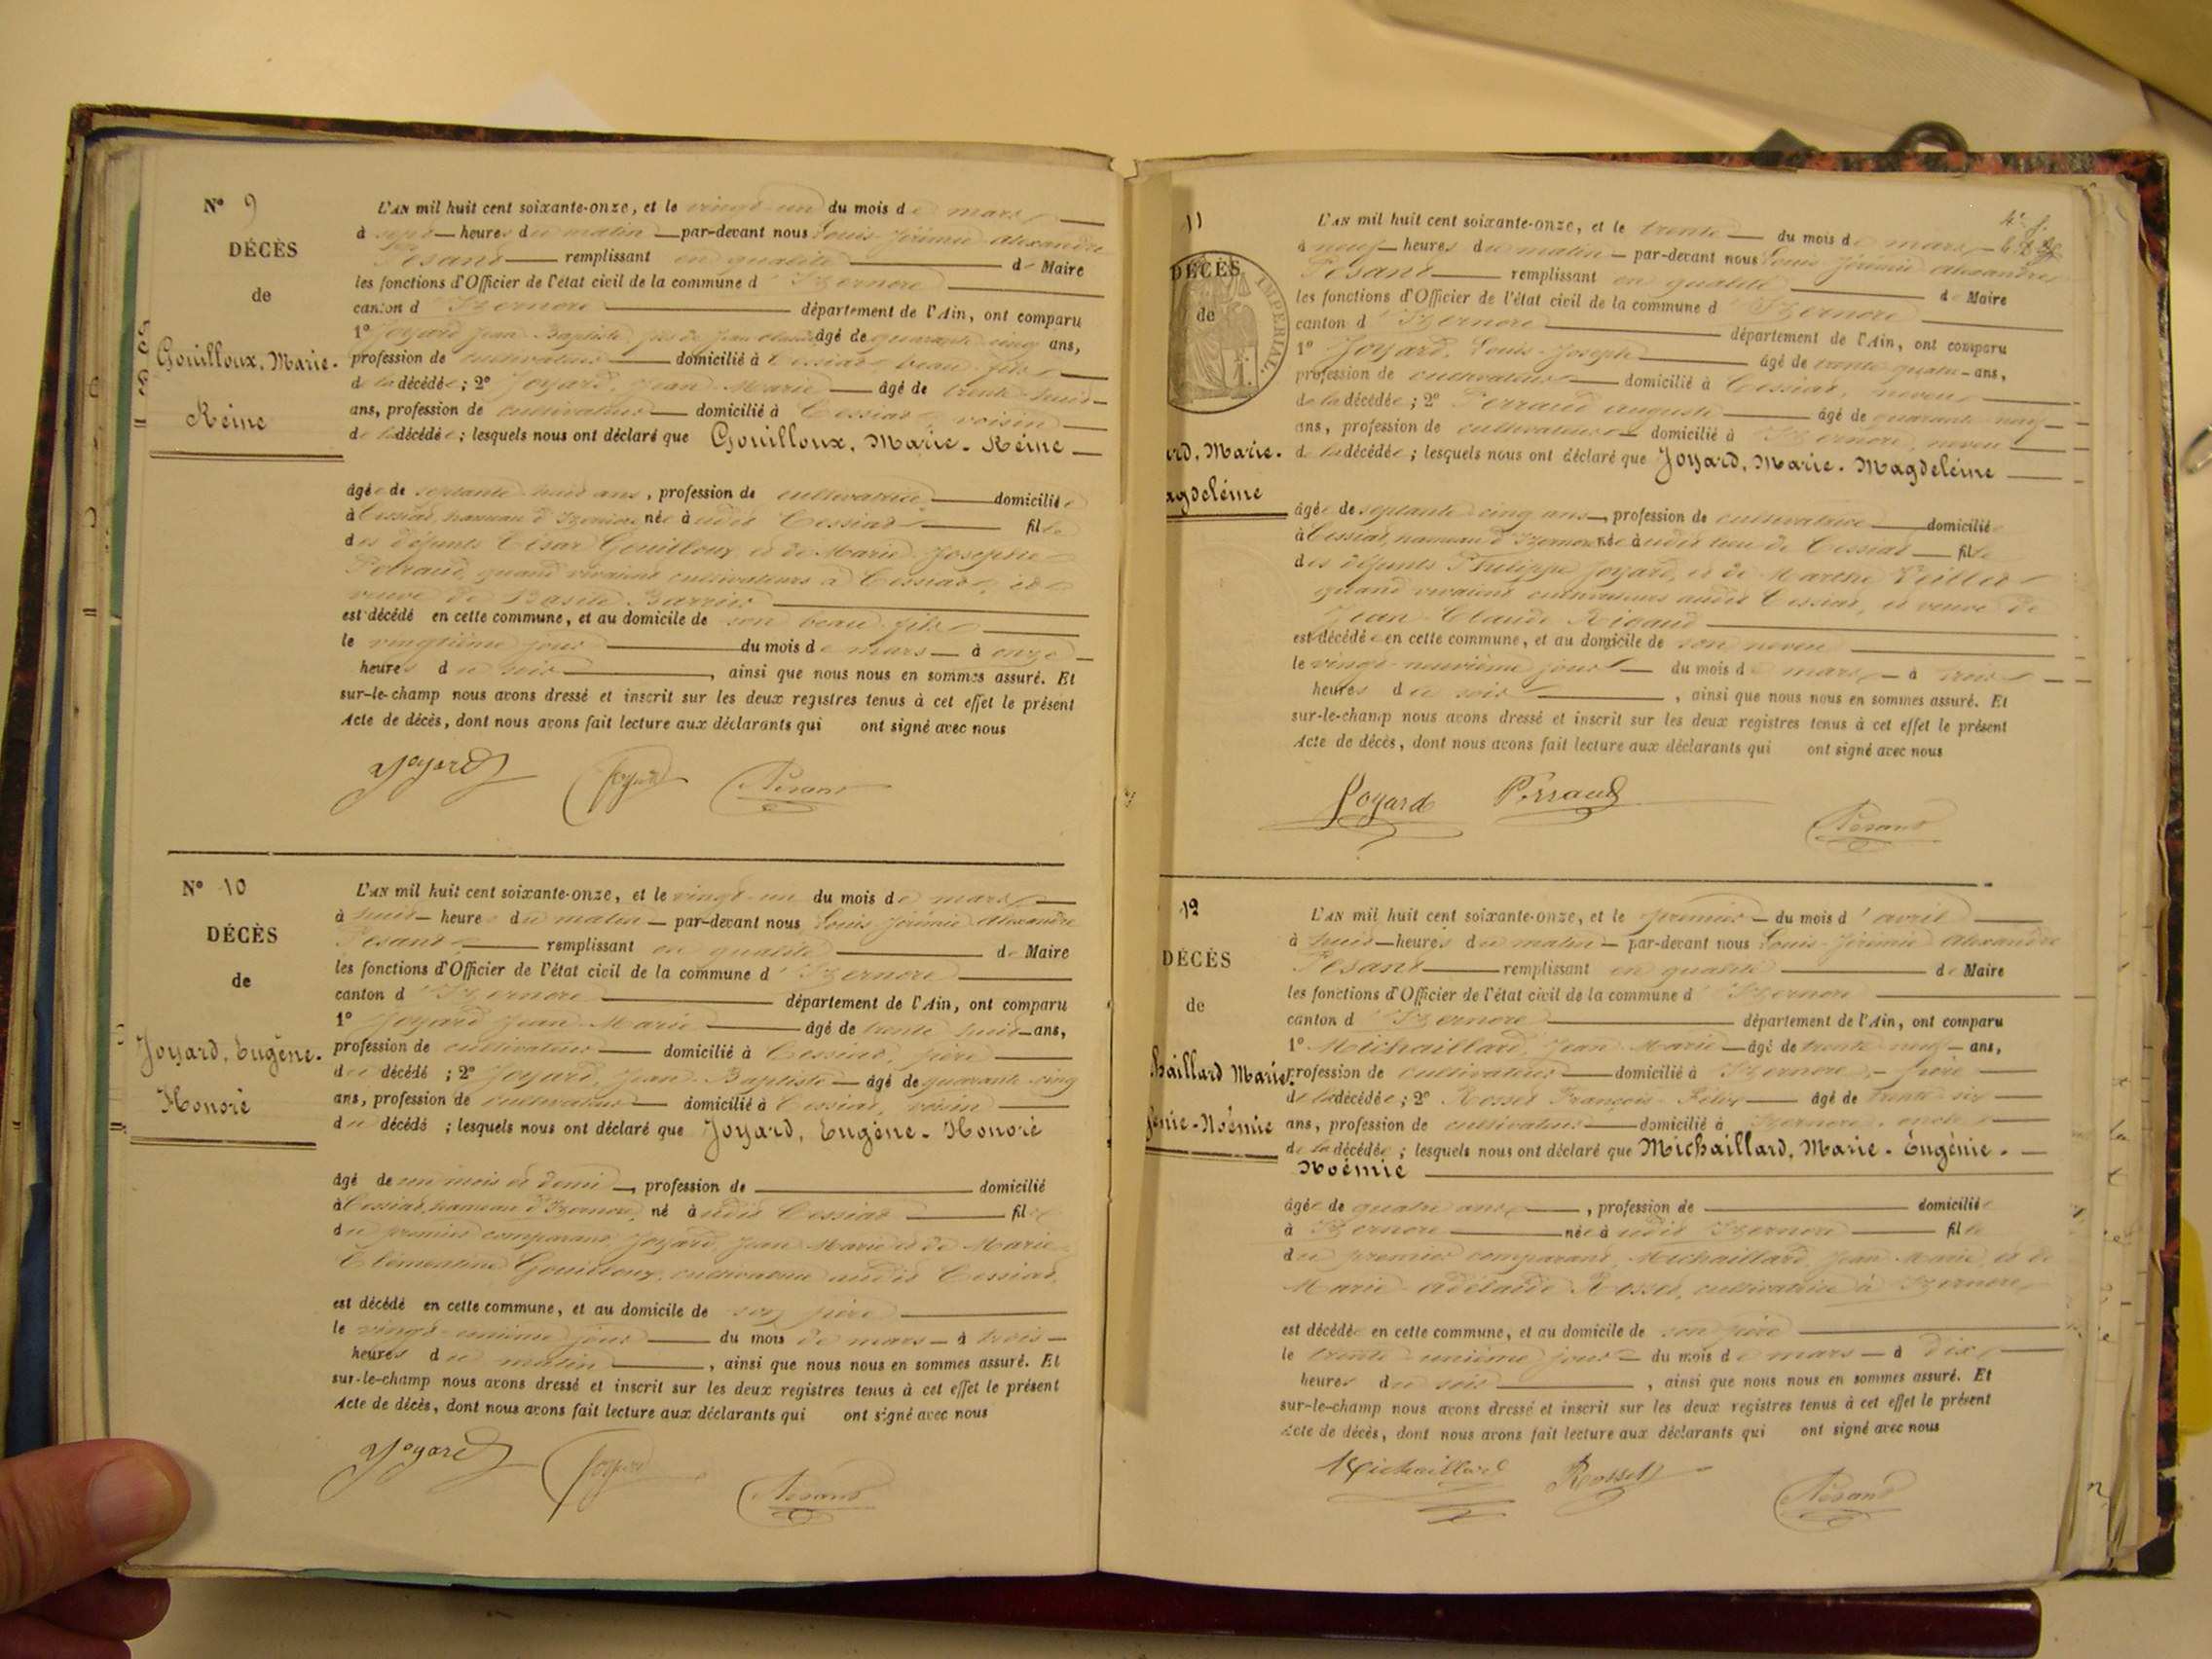 N° 9
DÉCÈS
de
Gouilloux, Marie-
Reine
L'AN mil huit cent soixante-onze, et le vingt-un du mois de mars
à sept heures du matin par-devant nous Louis Jérémie Alexandre
Pesant remplissant en qualité de Maire
les fonctions d'Officier de l'état civil de la commune d'Izernore
canton d'Izernore département de l'Ain, ont comparu
1° Joyard Jean Baptiste fils de Jean Claude âgé de quarante cinq ans,
profession de cultivateur domicilié à Cessiat beau-fils
de la décédée ; 2° Joyard, Jean Marie âgé de trente huit
ans, profession de cultivateur domicilié à Cessiat voisin
de la décédée ; lesquels nous ont déclaré que Gouilloux, Marie-Reine
âgée de septante huit ans, profession de cultivatrice domiciliée
à Cessiat, hameau d'Izernore née audit Cessiat fille
des défunts César Gouilloux et de Marie Josephte
quand vivaient cultivateurs à Cessiat, et
veuve de Basile
est décédé en cette commune, et au domicile de son beau-fils
le vingtième jour du mois de mars à onze
heures du soir, ainsi que nous nous en sommes assuré. Et
sur-le-champ nous avons dressé et inscrit sur les deux registres tenus à cet effet le présent
Acte de décès, dont nous avons fait lecture aux déclarants qui ont signé avec nous
Joyard Joyard Pesant
N° 10
DÉCÈS
de
Joyard, Eugène-
Honoré
L'AN mil huit cent soixante-onze, et le vingt-un du mois de mars
à huit heures du matin par-devant nous Louis Jérémie Alexandre
Pesant remplissant en qualité de Maire
les fonctions d'Officier de l'état civil de la commune d'Izernore
canton d'Izernore département de l'Ain, ont comparu
1° Joyard Jean Marie âgé de trente huit ans,
profession de cultivateur domicilié à Cessiat, père
du décédé ; 2° Joyard, Jean Baptiste âgé de quarante cinq
ans, profession de cultivateur domicilié à Cessiat, voisin
du décédé ; lesquels nous ont déclaré que Joyard, Eugène-Honoré
âgé de un mois et demi, profession de domicilié
à Cessiat, hameau d'Izernore, né audit Cessiat fils
du premier comparant Joyard Jean Marie et de Marie
Clémentine Gouilloux, cultivatrice audit Cessiat,
est décédé en cette commune, et au domicile de son père
le vingt-unième jour du mois de mars à trois
heures du matin, ainsi que nous nous en sommes assuré. Et
sur-le-champ nous avons dressé et inscrit sur les deux registres tenus à cet effet le présent
Acte de décès, dont nous avons fait lecture aux déclarants qui ont signé avec nous
Joyard Joyard Pesant
11
DÉCÈS
de
IMPERIAL
ard, Marie-
agdeleine
L'AN mil huit cent soixante-onze, et le trente du mois de mars
à neuf heures du matin par-devant nous Louis Jérémie Alexandre
Pesant remplissant en qualité de Maire
les fonctions d'Officier de l'état civil de la commune d'Izernore
canton d'Izernore département de l'Ain, ont comparu
1° Joyard, Louis-Joseph âgé de trente quatre ans,
profession de cultivateur domicilié à Cessiat, neveu
de la décédée ; 2° Perraud Auguste âgé de quarante neuf
ans, profession de cultivateur domicilié à Izernore, neveu
de la décédée ; lesquels nous ont déclaré que Joyard, Marie-Magdeleine
âgée de septante cinq ans, profession de cultivatrice domiciliée
à Cessiat, hameau d'Izernore née audit lieu de Cessiat fille
des défunts Philippe Joyard, et de Marthe
quand vivaient cultivateurs audit Cessiat, et veuve de
Jean Claude Rigaud
est décédée en cette commune, et au domicile de son neveu
le vingt-neuvième jour du mois de mars à trois
heures du soir, ainsi que nous nous en sommes assuré. Et
sur-le-champ nous avons dressé et inscrit sur les deux registres tenus à cet effet le présent
Acte de décès, dont nous avons fait lecture aux déclarants qui ont signé avec nous
Joyard Perraud
Pesant
12
DÉCÈS
de
haillard Marie-
génie-Noémie
L'AN mil huit cent soixante-onze, et le premier du mois d'avril
à huit heures du matin par-devant nous Louis Jérémie Alexandre
Pesant remplissant en qualité de Maire
les fonctions d'Officier de l'état civil de la commune d'Izernore
canton d'Izernore département de l'Ain, ont comparu
1° Michaillard, Jean Marie âgé de trente neuf ans,
profession de cultivateur domicilié à Izernore, père
de la décédée ; 2° Rosset François Félix âgé de trente six
ans, profession de cultivateur domicilié à Izernore, oncle
de la décédée ; lesquels nous ont déclaré que Michaillard, Marie-Eugénie-
Noémie
âgée de quatre ans, profession de domiciliée
à Izernore née audit Izernore fille
du premier comparant, Michaillard, Jean Marie, et de
Marie Adélaïde Rosset, cultivatrice à Izernore,
est décédée en cette commune, et au domicile de son père
le trente-unième jour du mois de mars à dix
heures du soir, ainsi que nous nous en sommes assuré. Et
sur-le-champ nous avons dressé et inscrit sur les deux registres tenus à cet effet le présent
Acte de décès, dont nous avons fait lecture aux déclarants qui ont signé avec nous
Michaillard Rosset Pesant